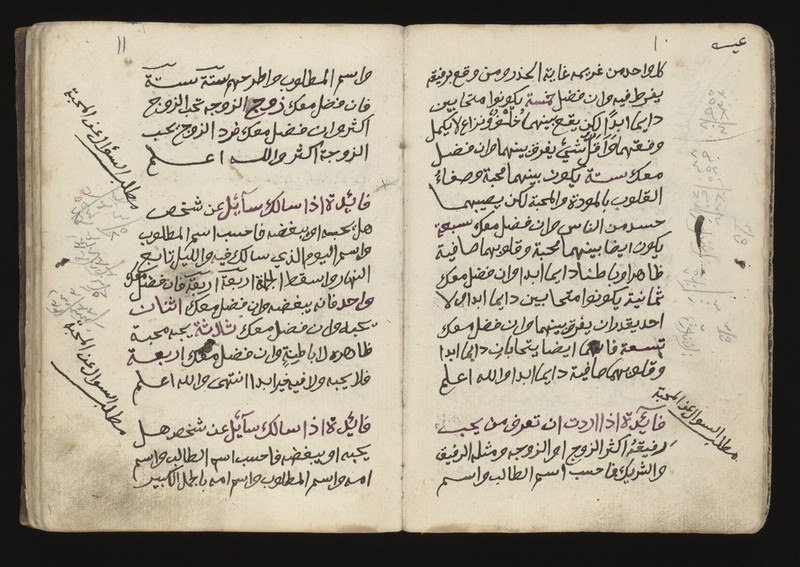 ١٠
كل واحد من غريمه غاية الحذر ومن وقع برفيقه
يفرط فيه وان فضل خمسة يكونوا متحابين
دايما ابدا لكن يقع بينهما خلف ونزاع لا يكمل
وضعتهما واقل شيئ يفرق بينهما وان فضل
معك ستة يكون بينهم محبة وصفاء
القلوب بالمودة والمحبة لكن يصيبهما
حسد من الناس وان فضل معك سبعة
يكون ايضا بينهما محبة وقلوبهما صافية
ظاهرا وباطنا دايما ابدا وان فضل معك
ثمانية يكونوا متحابين دايما ابدا لا
احد يقدر ان يفرق بينهما وان فضل معك
تسعة فانهما ايضا يتحابان دايما ابدا
وقلوبهما صافية دايما ابدا والله اعلم
مطلب السوال عن المحبة
فائدة اذا اردت ان تعرف من يحب
رفيقه اكثر الزوج او الزوجه ومثله الرفيق
والشريك فاحسب اسم الطالب واسم
١١
واسم المطلوب واطرحهم ستة ستة
فان فضل معك زوج الزوجه تحب الزوج
اكثر وان فضل معك فرد الزوج يحب
الزوجة اكثر والله اعلم
مطلب السوال عن المحبة
فائدة اذا سالك سآيل عن شخص
هل يحبه او يبغضه فاحسب اسم المطلوب
واسم اليوم الذي سالك فيه والليل تابع
النهار واسقط الجملة اربعة اربعة فان فضل معك
واحد فانه يبغضه وان فضل معك اثنان
يحبه وان فضل معك ثلاثة يحبه محبة
ظاهره لا باطنة وان فضل معك اربعة
فلا يحبه ولا فيه خير ابدا انتهى والله اعلم
مطلب السوال عن المحبة
فائدة اذا سالك سآيل عن شخص هل
يحبه او يبغضه فاحسب اسم الطالب واسم
امه واسم المطلوب واسم امه بالجمل الكبير